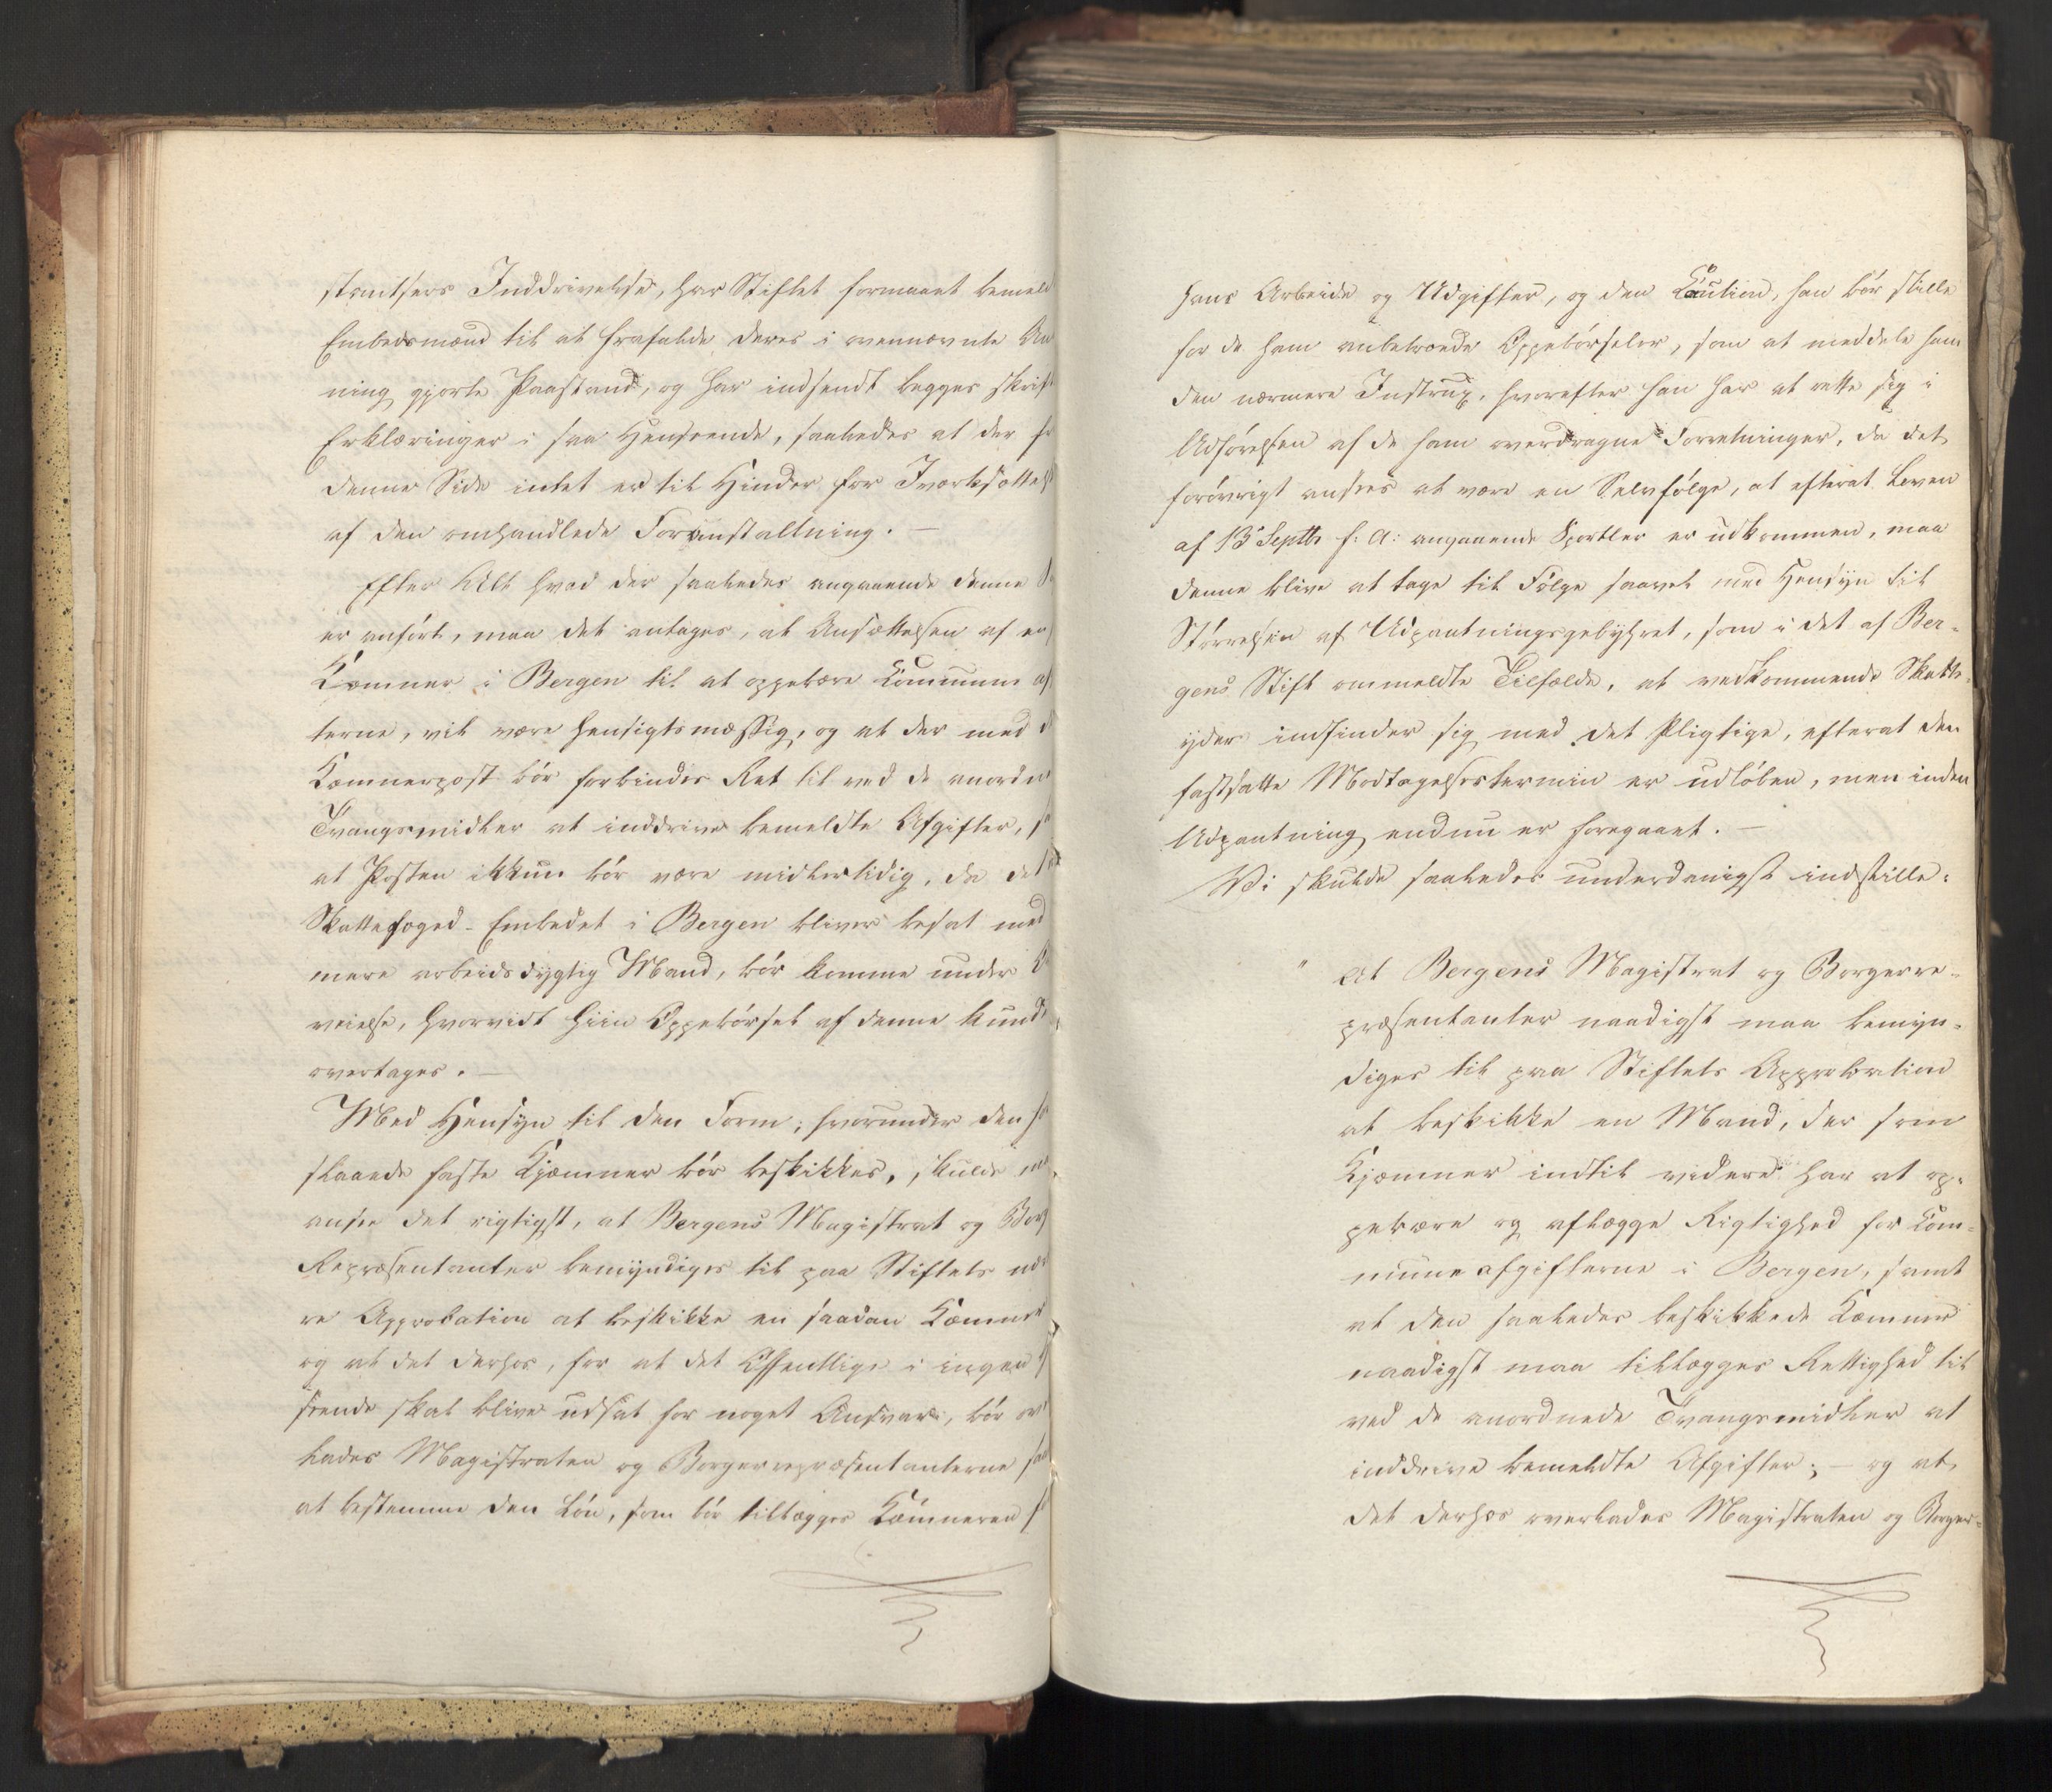 stantsers Inddrivelse, har Stiftet formaaet bemeld
Embedsmænd til at frafalde deres i ovennævnte An
ning gjorte Paastand, og har indsendt begges skrif
Erklæringer i saa Henseende, saaledes at der fr
denne Side intet er til Hinder for Iværksættels
af den omhandlede Foranstaltning. —
Efter Alt hvad der saaledes angaaende denne
er anført, maa det antages, at Ansættelsen af en
Kæmner i Bergen til at oppebære Communeaf
terne, vil være hensigtsmæssig, og at der med d
Kæmnerpost bør forbindes Ret til ved de anordn
Tvangsmidler at inddrive bemeldte Afgifter,
at Posten ikkun bør være midlertidig, da det
Skattefoged-Embedet i Bergen bliver besat med
mere arbeidsdygtig Mand, bør komme under O
veielse, hvorvidt hiin Oppebørsel af denne kunde
overtages. —
Med Hensyn til den Form, hvorunder den
slaaede faste Kjæmner bør beskikkes, skulde m
ansee det rigtigst, at Bergens Magistrat og Borg
Repræsentanter bemyndiges til paa Stiftets nær
re Approbation at beskikke en saadan Kæmner
og at det derhos, for at det Offentlige i ingen H
seende skal blive udsat for noget Ansvar, bør ov
lades Magistraten og Borgerrepræsentanterne saa
at bestemme den Løn, som bør tillægges Kæmneren f
hans Arbeide og Udgifter, og den Caution, han bør stille
for de ham anbetroede Oppebørseler, som at meddele ham
den nærmere Instrux, hvorefter han har at rette sig i
Udførelsen af de ham overdragne Forretninger, da det
forøvrigt ansees at være en Selvfølge, at efterat Loven
af 13 Septbr f: A: angaaende Sportler er udkommen, maa
denne blive at tage til Følge saavel med Hensyn til
Størrelsen af Udpantningsgebyhret, som i det af Ber-
gens Stift ommeldte Tilfælde, at vedkommende Skatte-
yder indfinder sig med det Pligtige, efterat den
fastsatte Modtagelsestermin er udløben, men inden
Udpantning endnu er foregaaet. —
Vi skulde saaledes underdanigst indstille:
" At Bergens Magistrat og Borgerre-
præsentanter naadigst maa bemyn-
diges til paa Stiftets Approbation
at beskikke en Mand, der som
Kjæmner indtil videre har at op-
pebære og aflægge Rigtighed for Com-
muneafgifterne i Bergen, samt
at den saaledes beskikkede Kæmner
naadigst maa tillægges Rettighed til
ved de anordnede Tvangsmidler at
inddrive bemeldte Afgifter; — og at
det derhos overlades Magistraten og Borger-